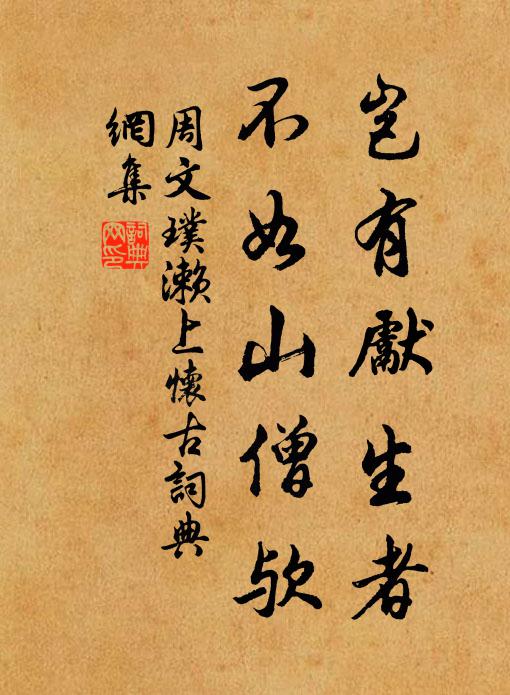 豈有獻生者
不如山僧欤
周文璞濑上懷古詞典
網集
詞典
网印